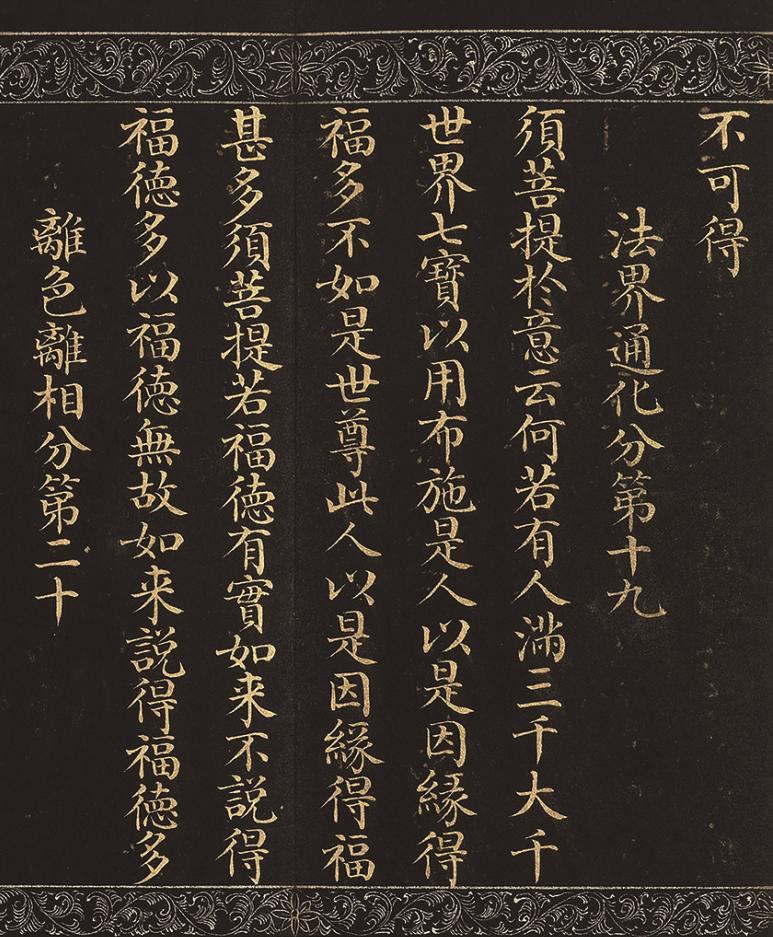 不可得
法界通化分第十九
須菩提於意云何若有人滿三千大千
世界七寶以用布施是人以是因緣得
福多不如是世尊此人以是因緣得福
甚多須菩提若福德有實如来不説得
福德多以福德無故如来説得福德多
離色離相分第二十